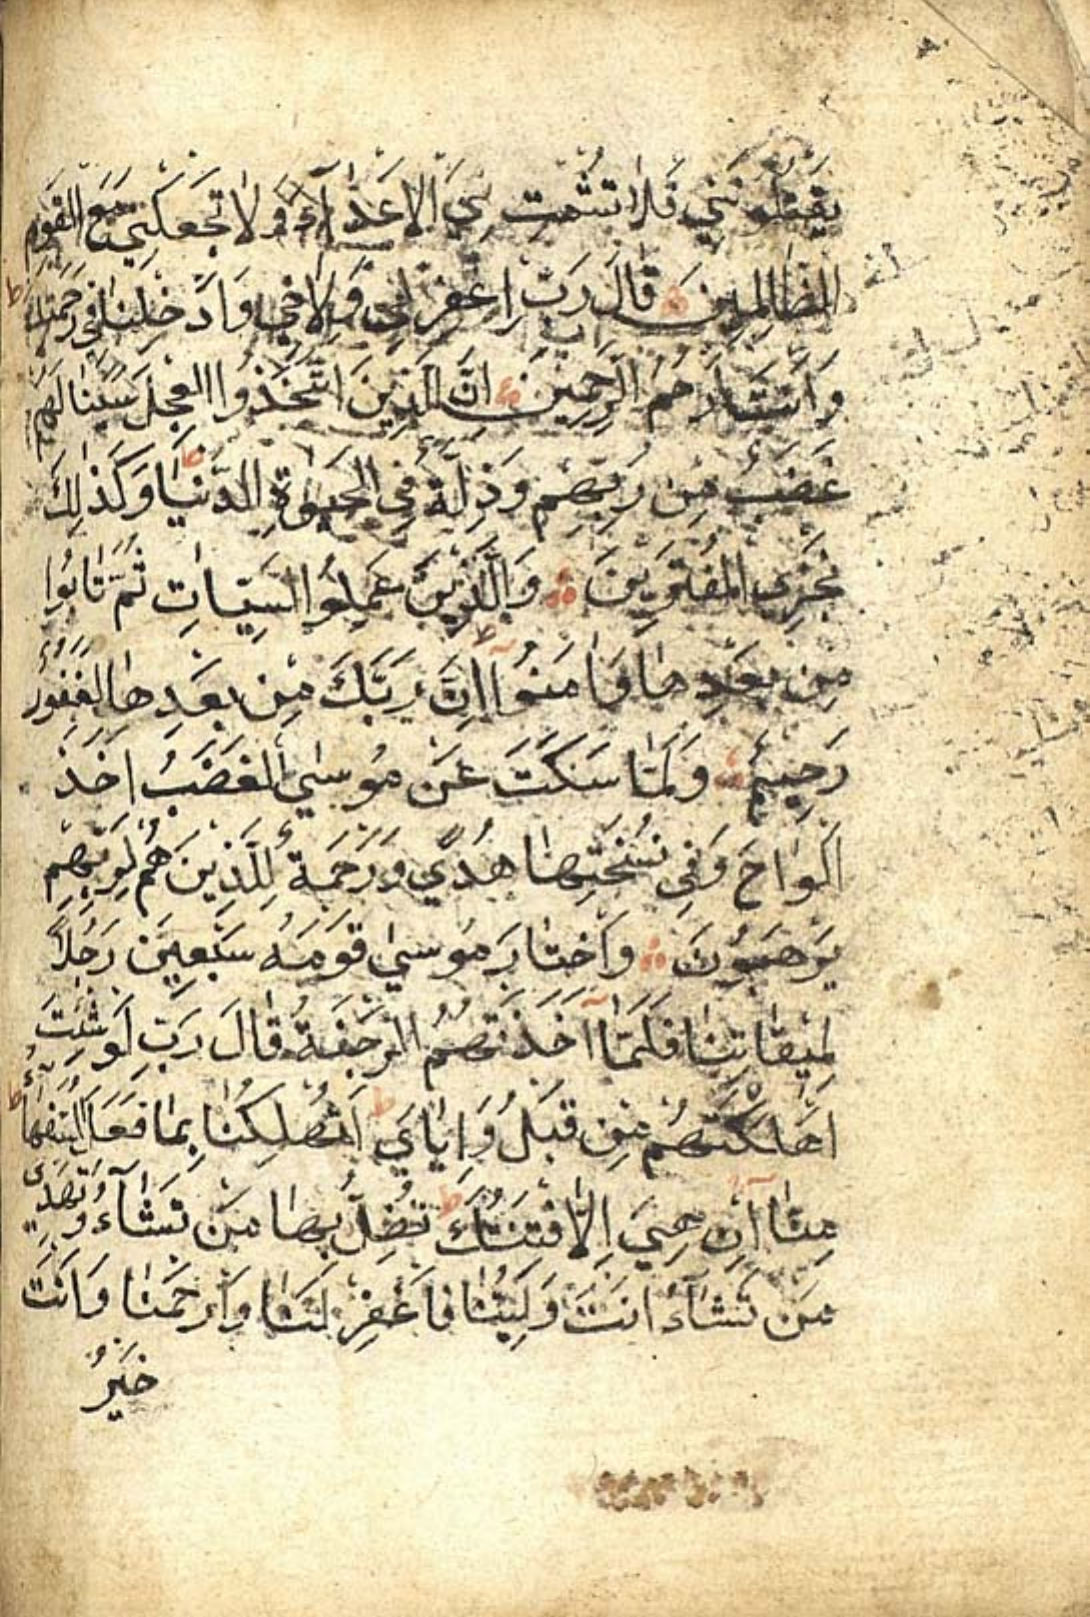 يَقْتُلُونَنِي فَلَا تُشْمِتْ بِيَ الْأَعْدَآءَ وَلَا تَجْعَلْنِي مَعَ الْقَوْمِ
الظَّالِمِينَ قَالَ رَبِّ اغْفِرْ لِي وَلِأَخِي وَأَدْخِلْنَا فِي رَحْمَتِكَ ط
وَأَنْتَ أَرْحَمُ الرَّحِمِينَ إِنَّ الَّذِينَ اتَّخَذُوا الْعِجْلَ سَيَنَالُهُمْ
غَضَبٌ مِنْ رَبِّهِمْ وَذِلَّةٌ فِي الْحَيٰوةِ الدُّنْيَا ط وَكَذٰلِكَ
نَجْزِي الْمُفْتَرِينَ وَالَّذِينَ عَمِلُوا السَّيِّئَاتِ ثُمَّ تَابُوا
مِنْ بَعْدِهَا وَاٰمَنُوآ إِنَّ رَبَّكَ مِنْ بَعْدِهَا لَغَفُورٌ
رَحِيمٌ وَلَمَّا سَكَتَ عَنْ مُوسٰي الْغَضَبُ أَخَذَ
الْأَلْوَاحَ وَفِي نُسْخَتِهَا هُدًي وَرَحْمَةٌ لِلَّذِينَ هُمْ لِرَبِّهِمْ
يَرْهَبُونَ وَاخْتَارَ مُوسٰي قَوْمَهُ سَبْعِينَ رَجُلًا
لِمِيقَاتِنَا فَلَمَّآ أَخَذَتْهُمُ الرَّجْفَةُ قَالَ رَبِّ لَوْ شِئْتَ
أَهْلَكْتَهُمْ مِنْ قَبْلُ وَإِيَّايَ ط أَتُهْلِكُنَا بِمَا فَعَلَ السُّفَهَآءُ ط
مِنَّآ إِنْ هِيَ إِلَّا فِتْنَتُكَ ط تُضِلُّ بِهَا مَنْ تَشَآءُ وَتَهْدِي
مَنْ تَشَآءُ أَنْتَ وَلِيُّنَا فَاغْفِرْ لَنَا وَارْحَمْنَا وَأَنْتَ
خَيْرُ